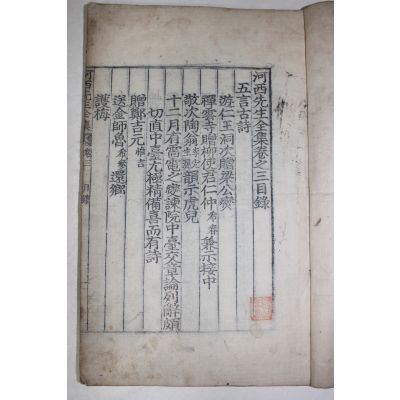 河西先生全集卷之三目錄
五言古詩
遊仁王洞次贈梁公
禪雲寺贈柳使君仁仲兼示接中
敬次陶翁韻示虎兒
十二月有雷電之變諫院中臺交章論列辭頗
切直中臺尤極精備喜而有詩
贈鄭吉元惟吉
送金師魯還鄉
護梅
河西先生全集 卷三 目錄